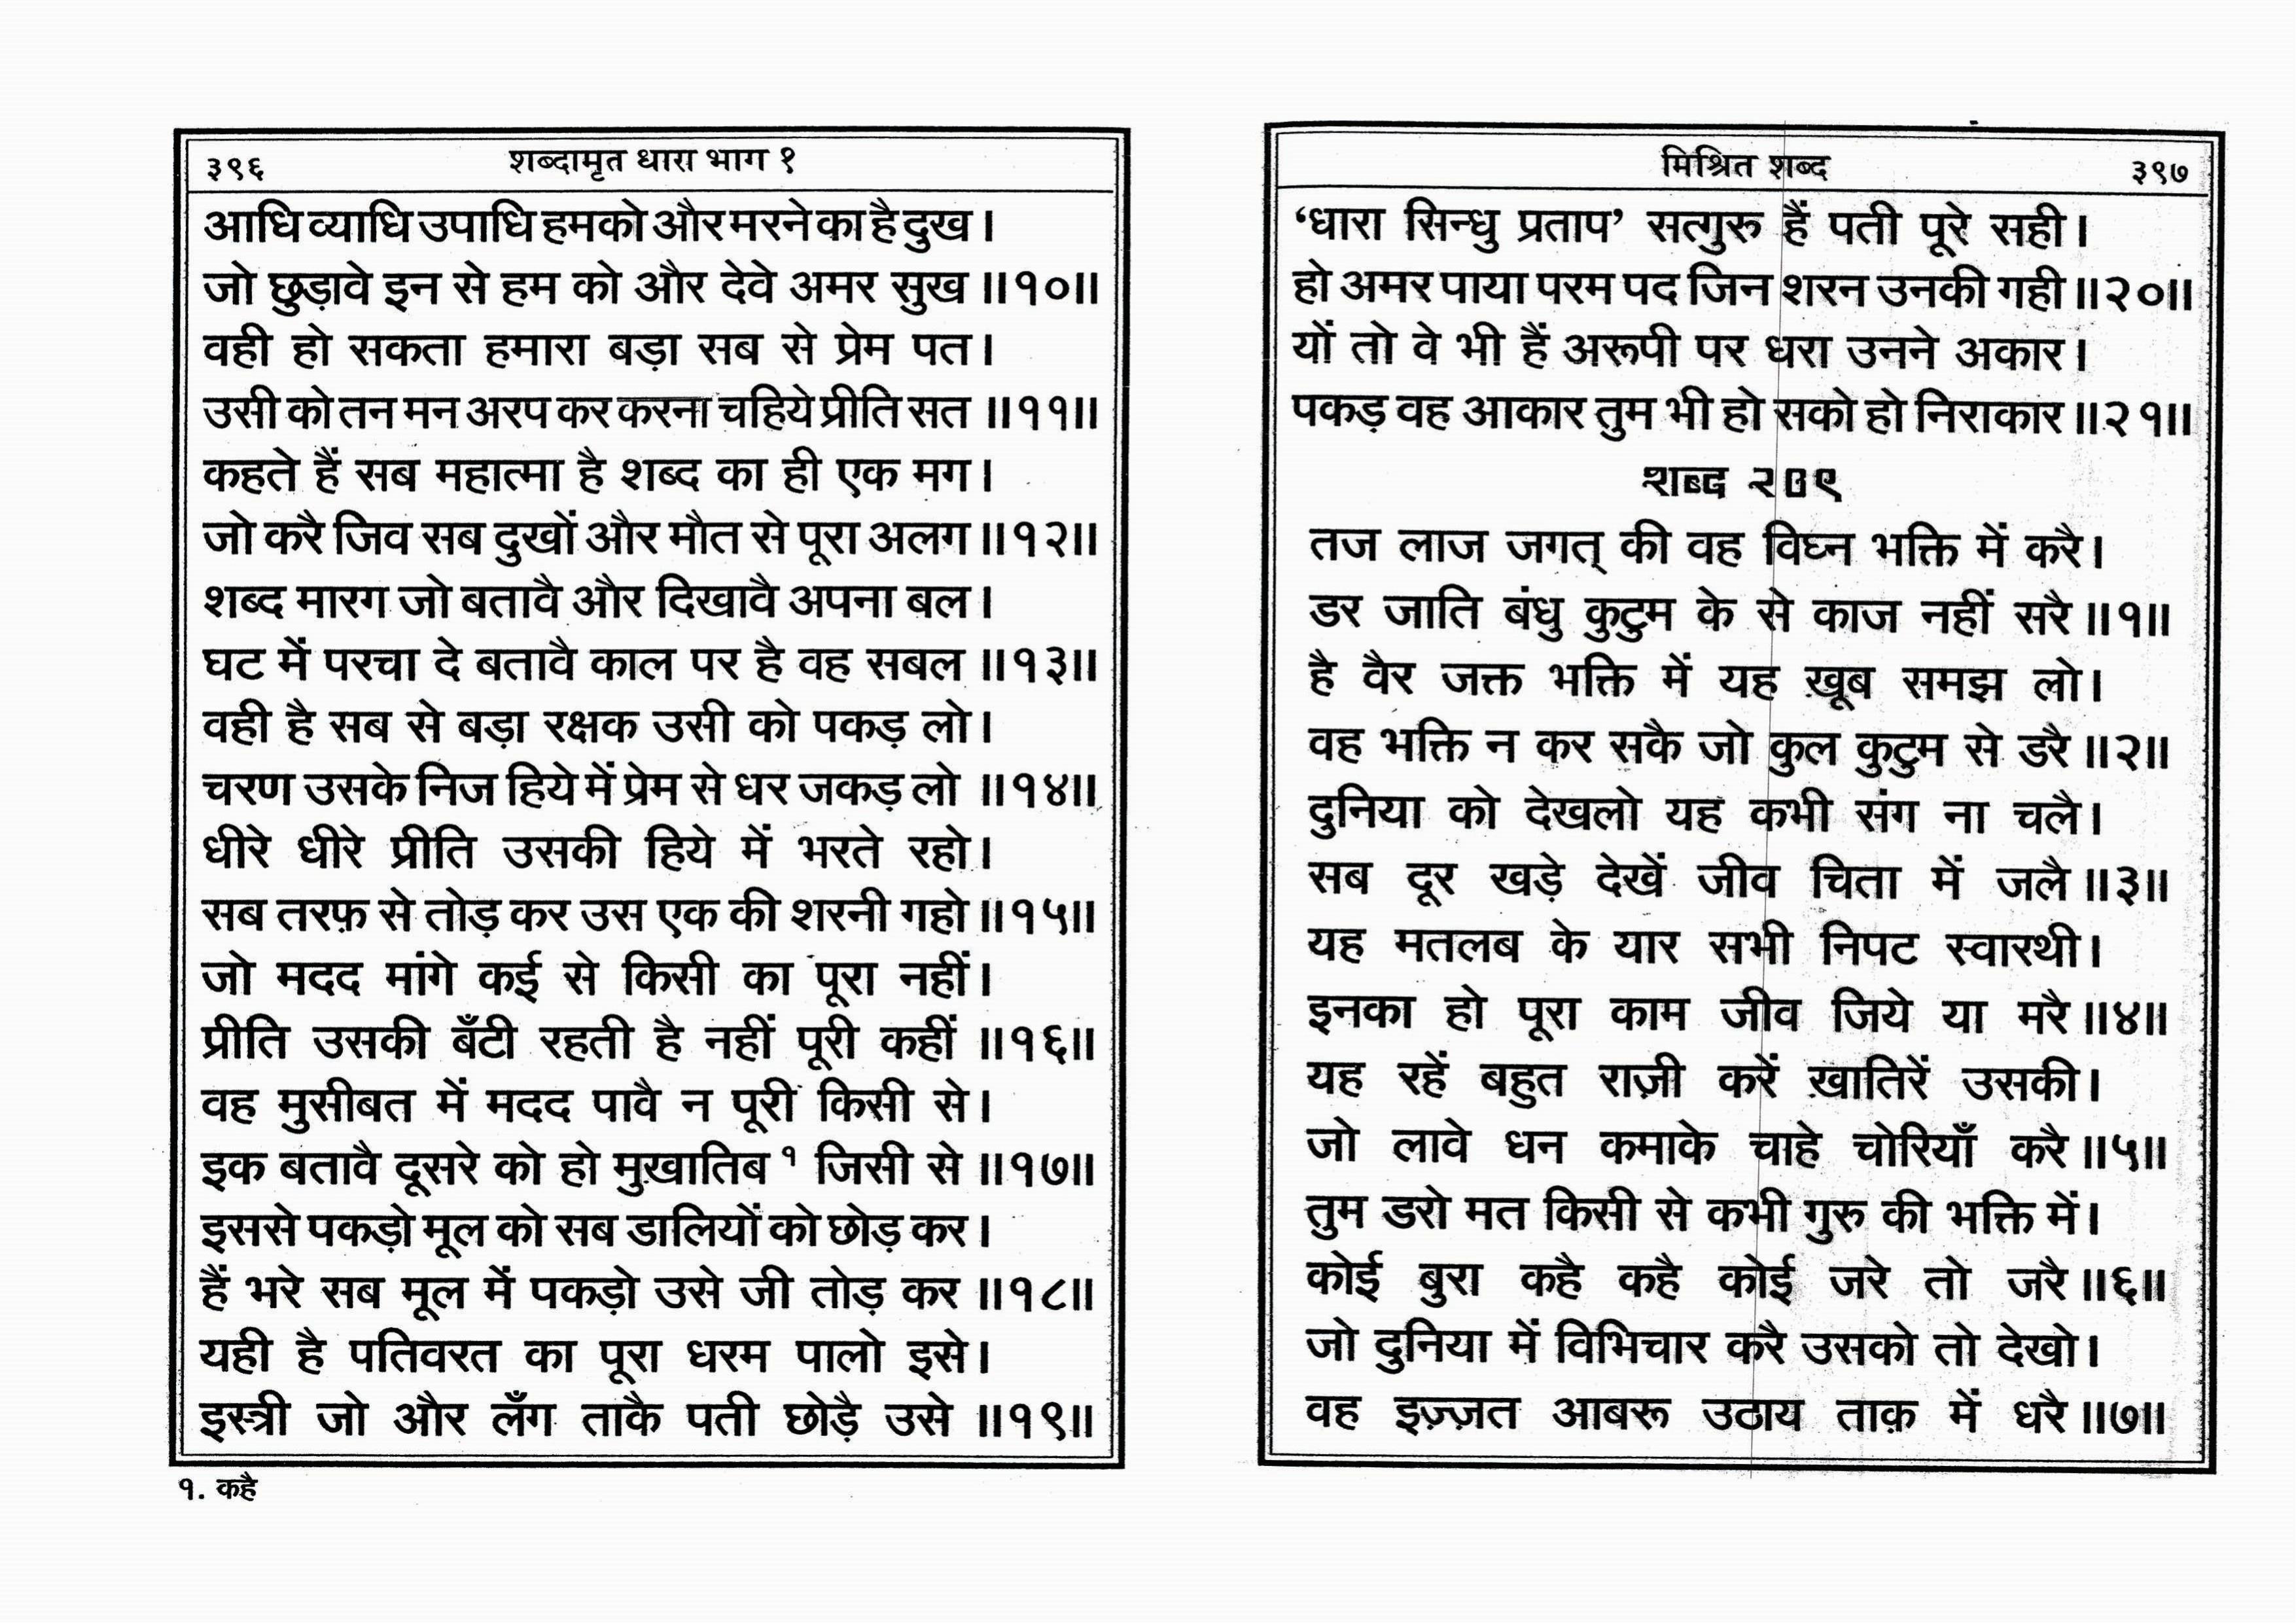 ३९६ शब्दामृत धारा भाग १
आधि व्याधि उपाधि हमको और मरने का है दुख ।
जो छुड़ावे इन से हम को और देवे अमर सुख ॥१०॥
वही हो सकता हमारा बड़ा सब से प्रेम पत ।
उसी को तन मन अरप कर करना चहिये प्रीति सत ॥११॥
कहते हैं सब महात्मा है शब्द का ही एक मग ।
जो करै जिव सब दुखों और मौत से पूरा अलग ॥१२॥
शब्द मारग जो बतावै और दिखावै अपना बल ।
घट में परचा दे बतावै काल पर है वह सबल ॥१३॥
वही है सब से बड़ा रक्षक उसी को पकड़ लो ।
चरण उसके निज हिये में प्रेम से धर जकड़ लो ॥१४॥
धीरे धीरे प्रीति उसकी हिये में भरते रहो ।
सब तरफ़ से तोड़ कर उस एक की शरनी गहो ॥१५॥
जो मदद मांगे कई से किसी का पूरा नहीं ।
प्रीति उसकी बँटी रहती है नहीं पूरी कहीं ॥१६॥
वह मुसीबत में मदद पावै न पूरी किसी से ।
इक बतावै दूसरे को हो मुख़ातिब १ जिसी से ॥१७॥
इससे पकड़ो मूल को सब डालियों को छोड़ कर ।
हैं भरे सब मूल में पकड़ो उसे जी तोड़ कर ॥१८॥
यही है पतिवरत का पूरा धरम पालो इसे ।
इस्त्री जो और लँग ताकै पती छोड़ै उसे ॥१९॥
१. कहै
मिश्रित शब्द ३९७
‘धारा सिन्धु प्रताप’ सत्गुरु हैं पती पूरे सही ।
हो अमर पाया परम पद जिन शरन उनकी गही ॥२०॥
यों तो वे भी हैं अरूपी पर धरा उनने अकार ।
पकड़ वह आकार तुम भी हो सको हो निराकार ॥२१॥
शब्द
तज लाज जगत् की वह विघ्न भक्ति में करै ।
डर जाति बंधु कुटुम के से काज नहीं सरै ॥१॥
है वैर जक्त भक्ति में यह ख़ूब समझ लो ।
वह भक्ति न कर सकै जो कुल कुटुम से डरै ॥२॥
दुनिया को देखलो यह कभी संग ना चलै ।
सब दूर खड़े देखें जीव चिता में जलै ॥३॥
यह मतलब के यार सभी निपट स्वारथी ।
इनका हो पूरा काम जीव जिये या मरै ॥४॥
यह रहें बहुत राज़ी करें ख़ातिरें उसकी ।
जो लावे धन कमाके चाहे चोरियाँ करै ॥५॥
तुम डरो मत किसी से कभी गुरु की भक्ति में ।
कोई बुरा कहै कहै कोई जरे तो जरै ॥६॥
जो दुनिया में विभिचार करै उसको तो देखो ।
वह इज़्ज़त आबरू उठाय ताक़ में धरै ॥७॥